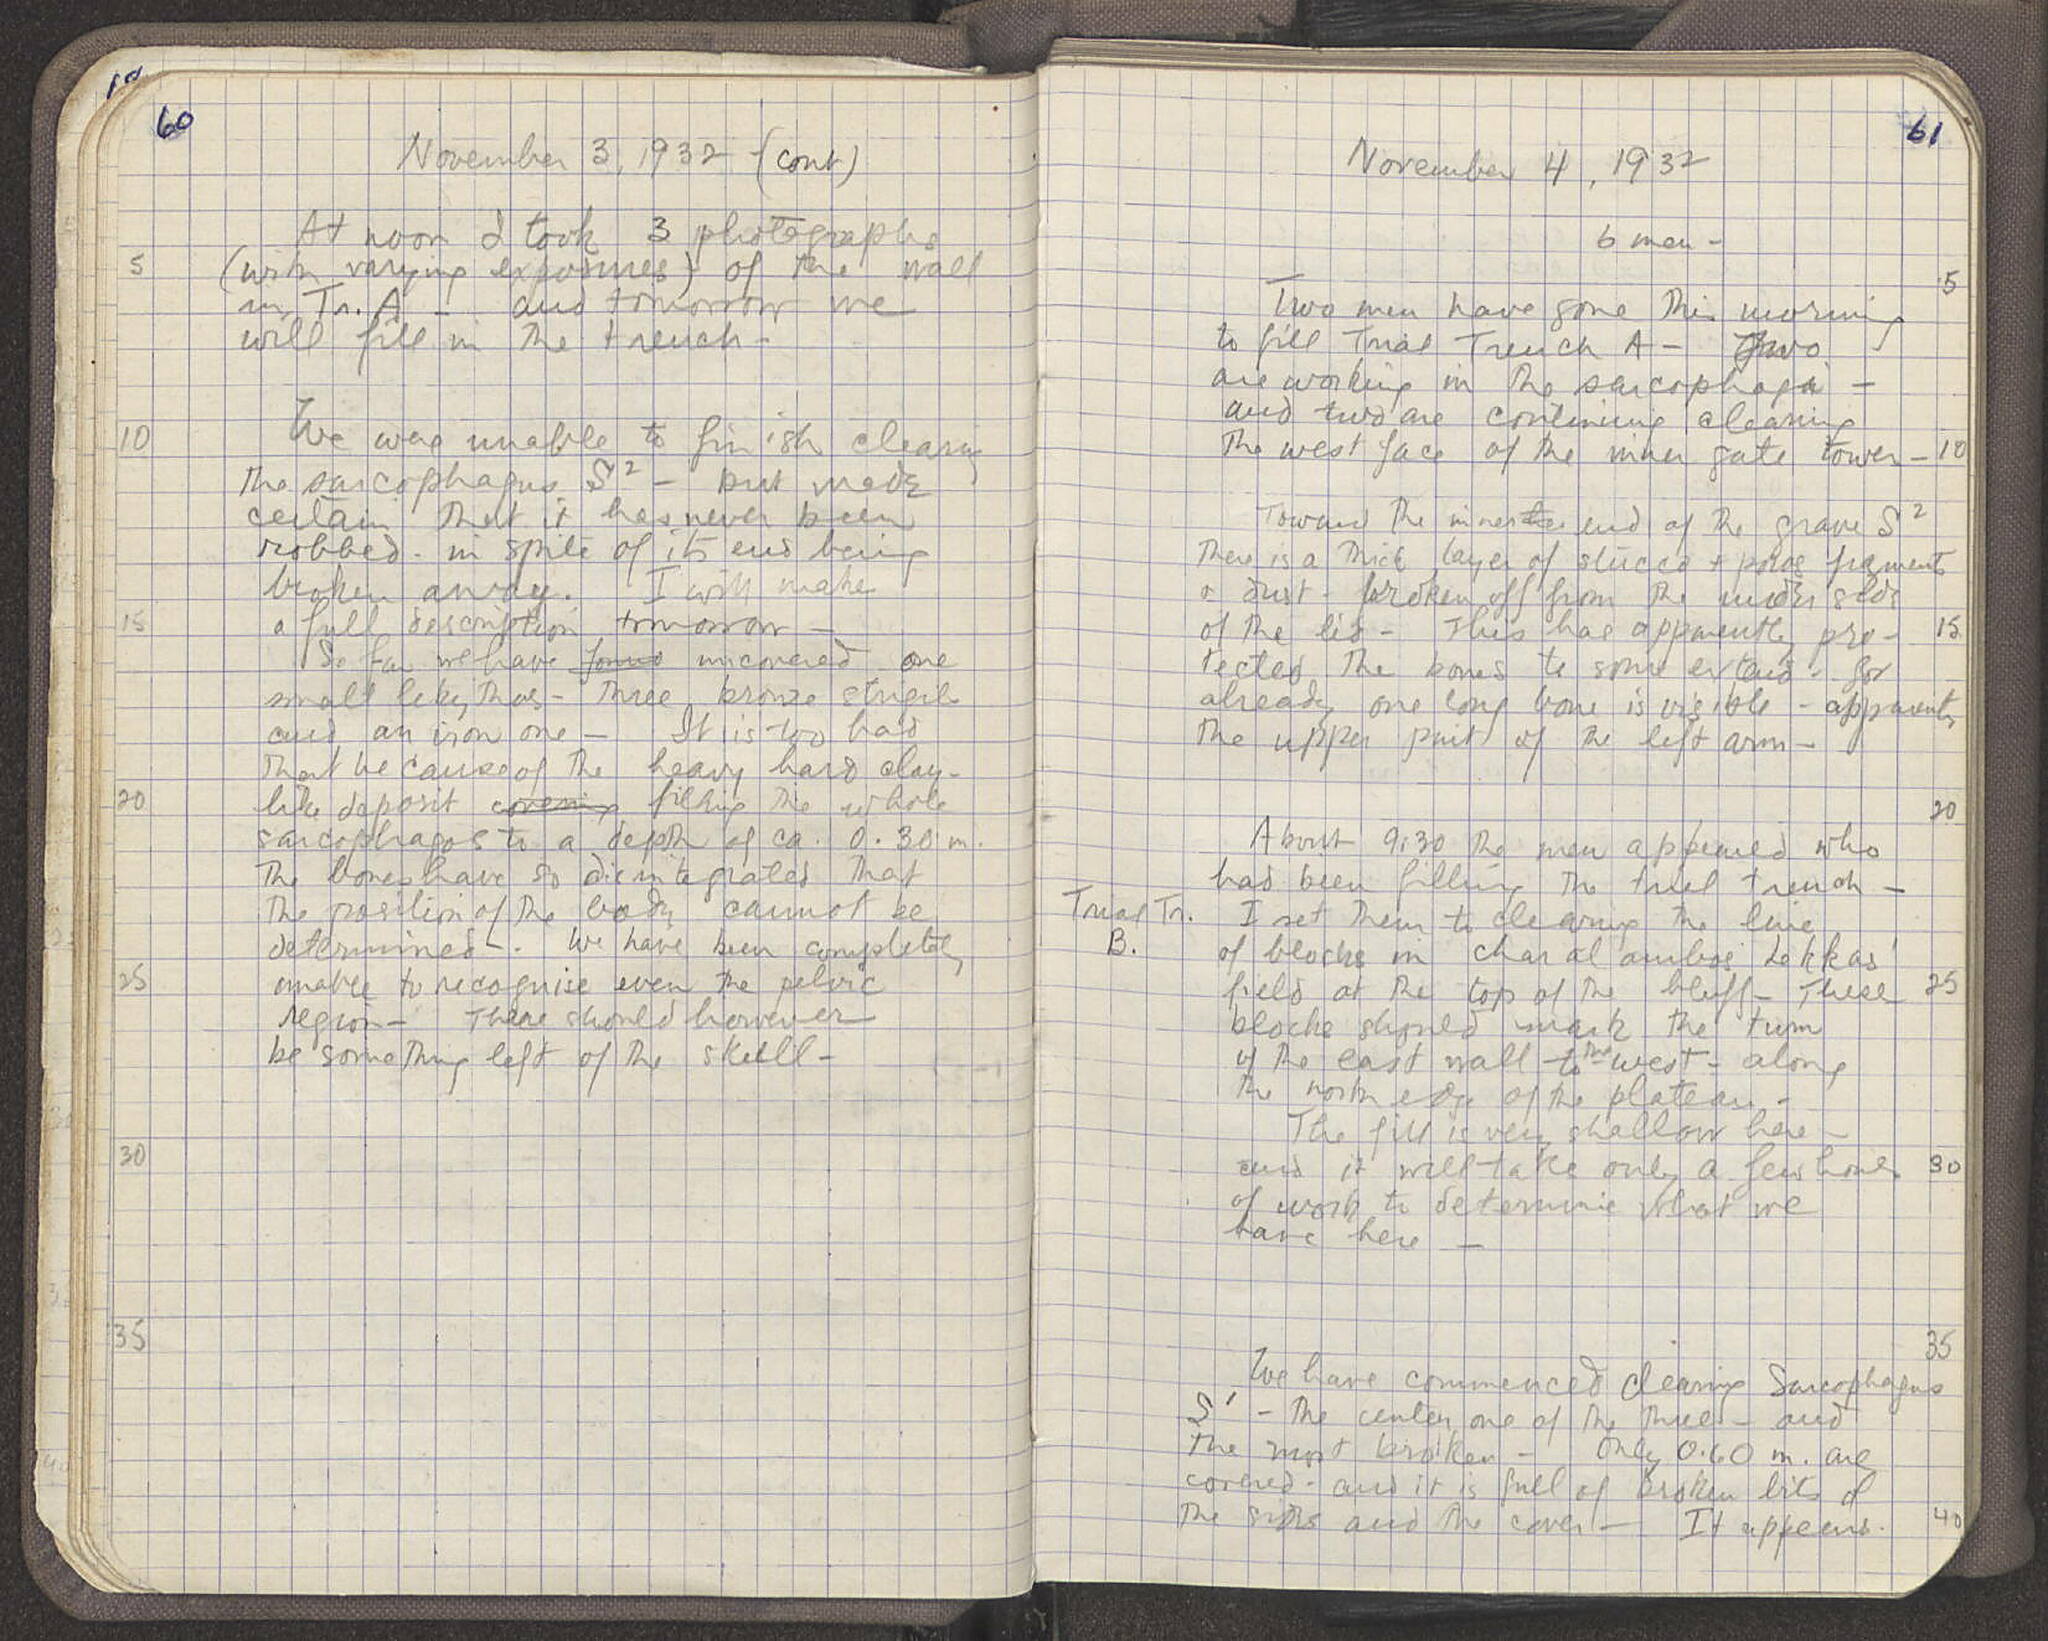 60
November 3, 1932 - (cont)
At noon I took 3 photographs
5
(with varying exposures) of the wall
in Tr. A - and tomorrow we
will fill in the trench -
10
We were unable to finish clearing
the sarcophagus S² - but made
certain that it has never been
robbed - in spite of its end being
broken away. I will make
15
a full description tomorrow -
So far we have found uncovered one
small lekythos - three bronze strigils
and an iron one - It is too bad
that because of the heavy hard clay-
20
like deposit covering filling the whole
sarcophagos to a depth of ca. 0.30 m.
the bones have so disintegrated that
the position of the body cannot be
determined -. We have been completely
25
unable to recognise even the pelvic
region - There should however
be something left of the skull -
30
35
61
November 4, 1932
6 men -
5
Two men have gone this morning
to fill Trial Trench A - Two
are working in the sarcophagi -
and two are continuing clearing
the west face of the inner gate tower - 10
Toward the inner end of the grave S²
there is a thick layer of stucco + poros fragments
& dust - broken off from the under side
of the lid - This has apparently pro- 15
tected the bones to some extend - for
already one long bone is visible - apparently
the upper part of the left arm -
20
About 9:30 the men appeared who
had been filling the trial trench -
Trial Tr. B.
I set them to clearing the line
of blocks in Charalambos Lekkas'
field at the top of the bluff - These 25
blocks should mark the turn
of the east wall to the west - along
the north edge of the plateau -
The fill is very shallow here -
and it will take only a few hours 30
of work to determine what we
have here -
35
We have commenced clearing Sarcophagus
S' - the center one of the three - and
the most broken - Only 0.60 m. are
covered - and it is full of broken bits of
the sides and the cover - It appears. 40